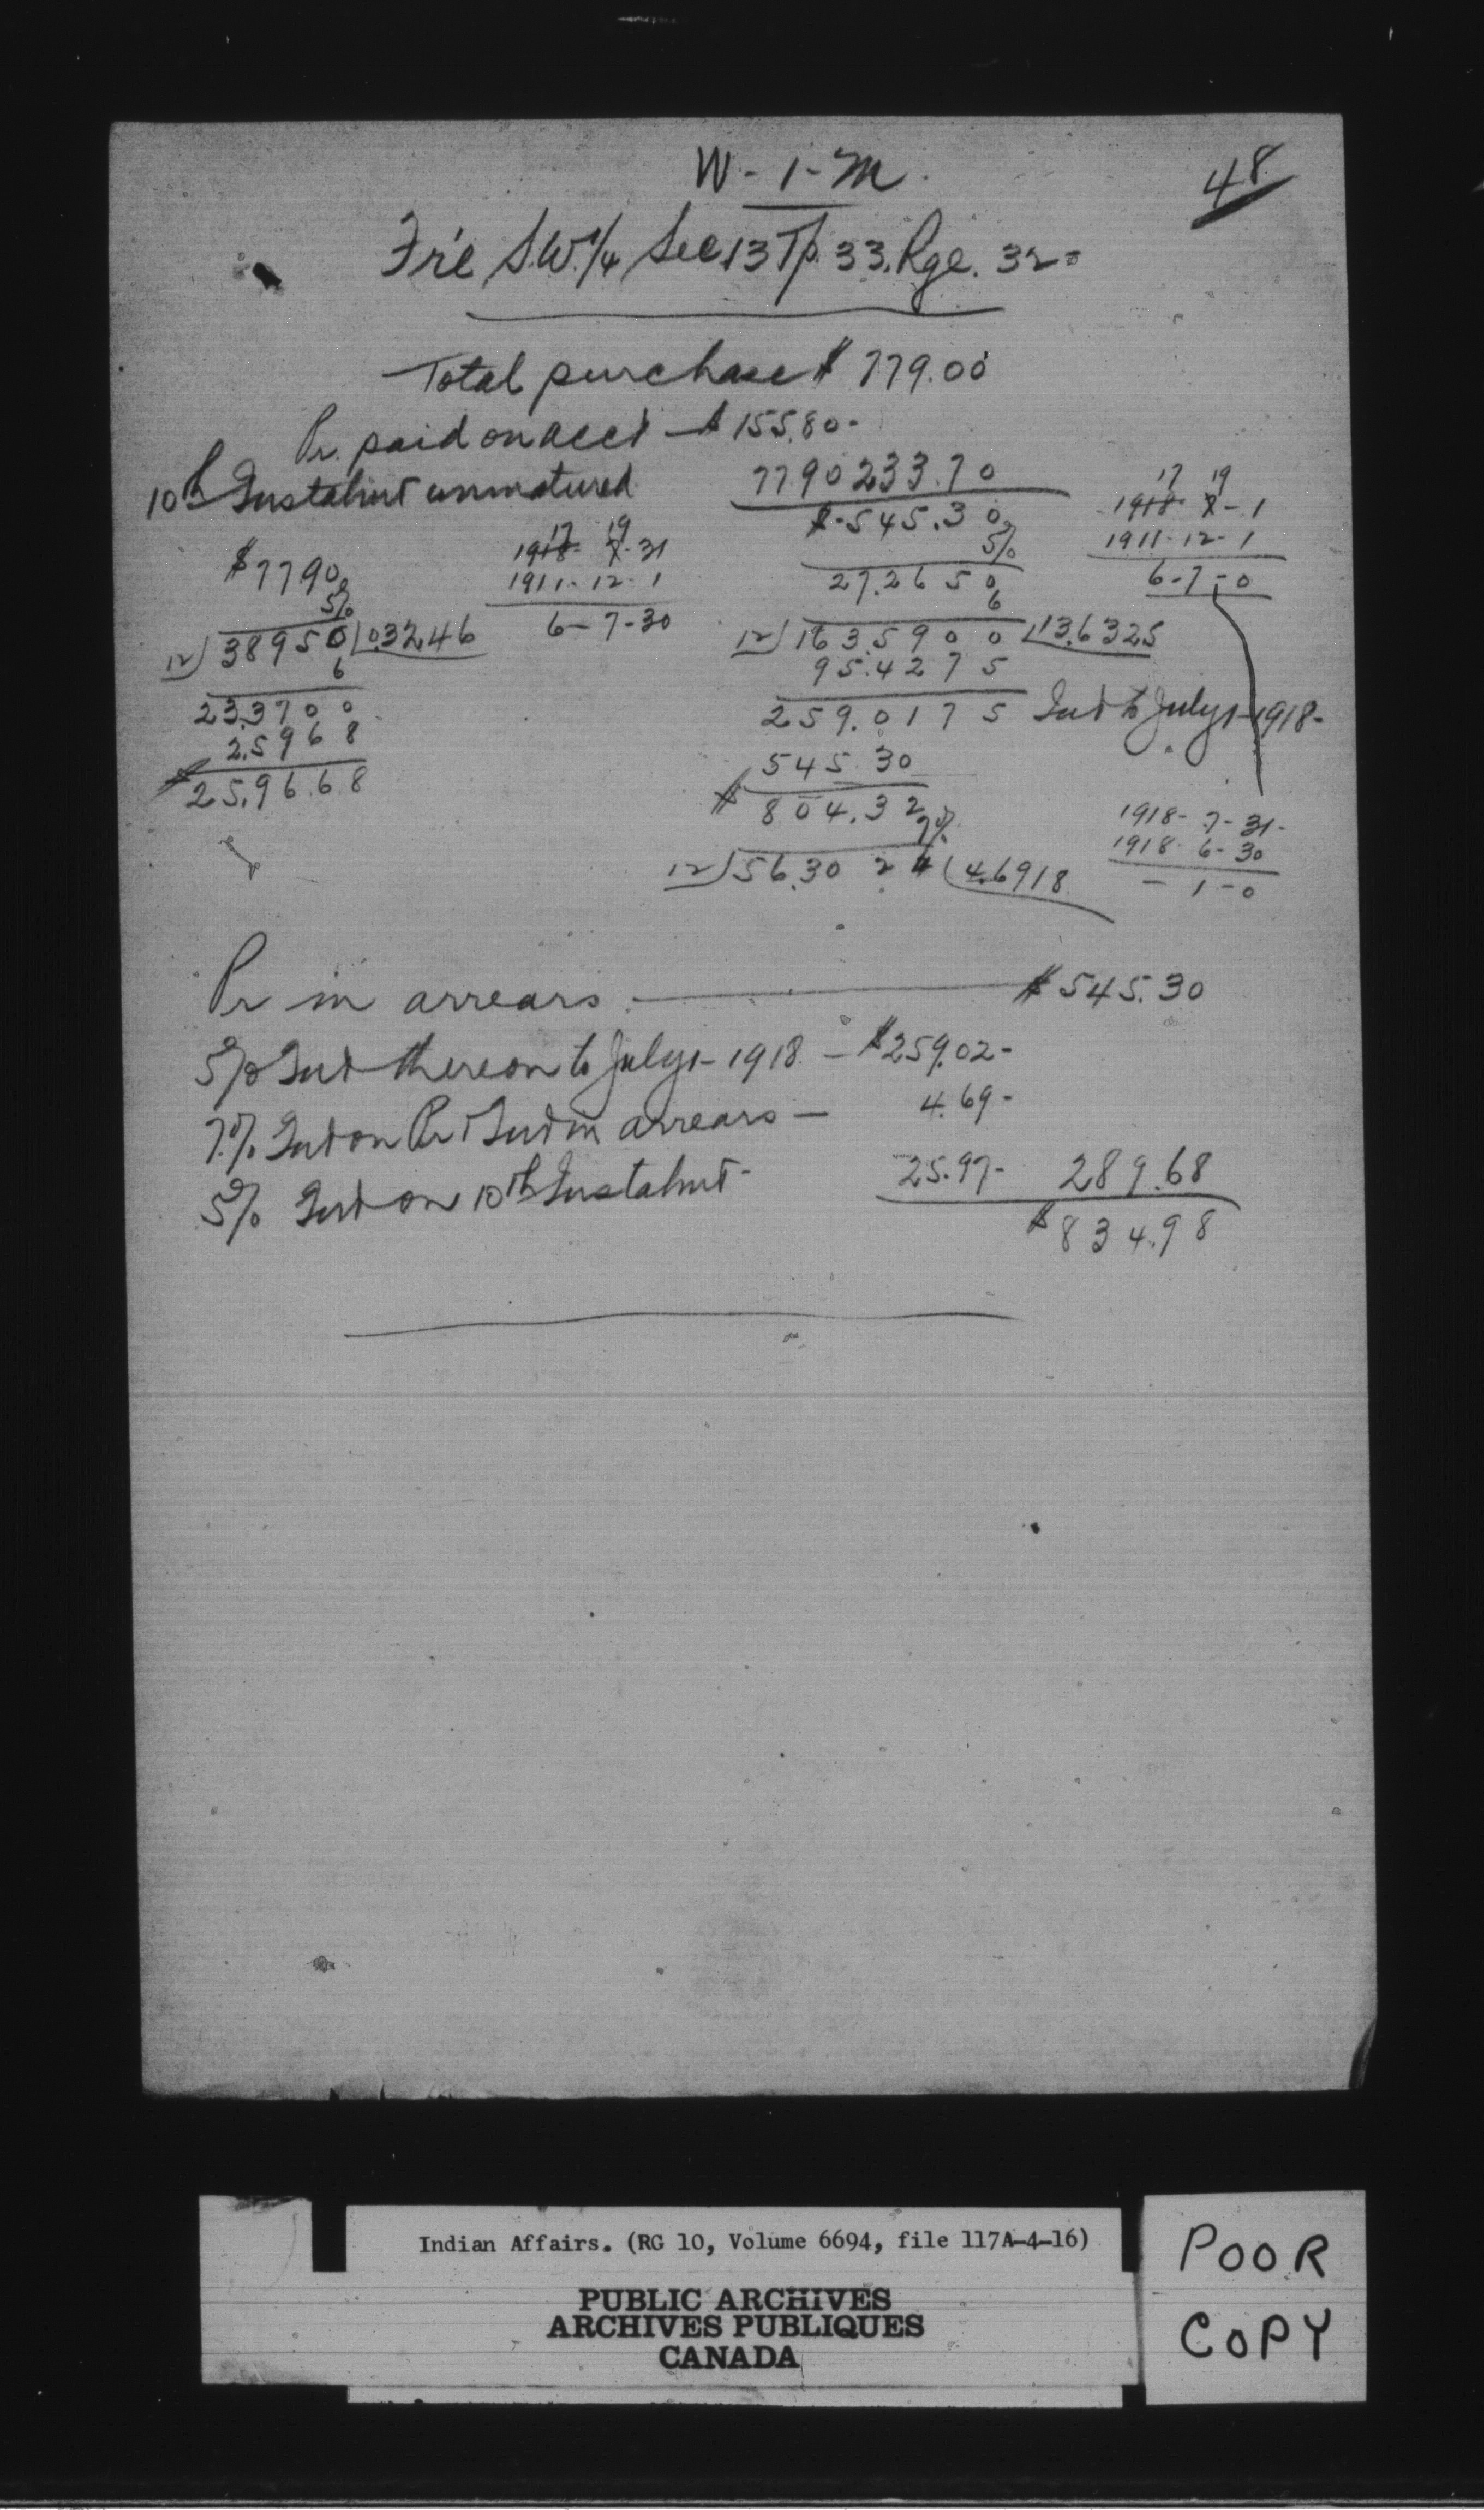 W-1-M.
48
Fr'l S.W.1/4 Sec 13 Tp. 33. Rge. 32-
Total purchase $ 779.00
Pr. paid on acct - $ 155.80-
10th Instalmt unmatured
77.90 233.70
$-545.30
5%
27.2650
6
12)163.5900(13.6325
95.4275
259.0175 Int to July 1-1918-
545.30
$ 804.32
7%
12)56.3024(4.6918
17 19
1918- 7-1
1911-12-1
6-7-0
$77.90
5%
12)38950(0.3246
6
23.3700
2.5968
$25.9668
17 19
1918- 7-31
1911-12-1
6-7-30
1918-7-31-
1918-6-30
- 1-0
Pr in arrears. $545.30
5% Int thereon to July 1-1918 - $259.02-
7% Int on Pr & Int in arrears - 4.69-
5% Int on 10th Instalmt- 25.97- 289.68
$834.98
Indian Affairs. (RG 10, Volume 6694, file 117A-4-16)
PUBLIC ARCHIVES
ARCHIVES PUBLIQUES
CANADA
POOR
COPY